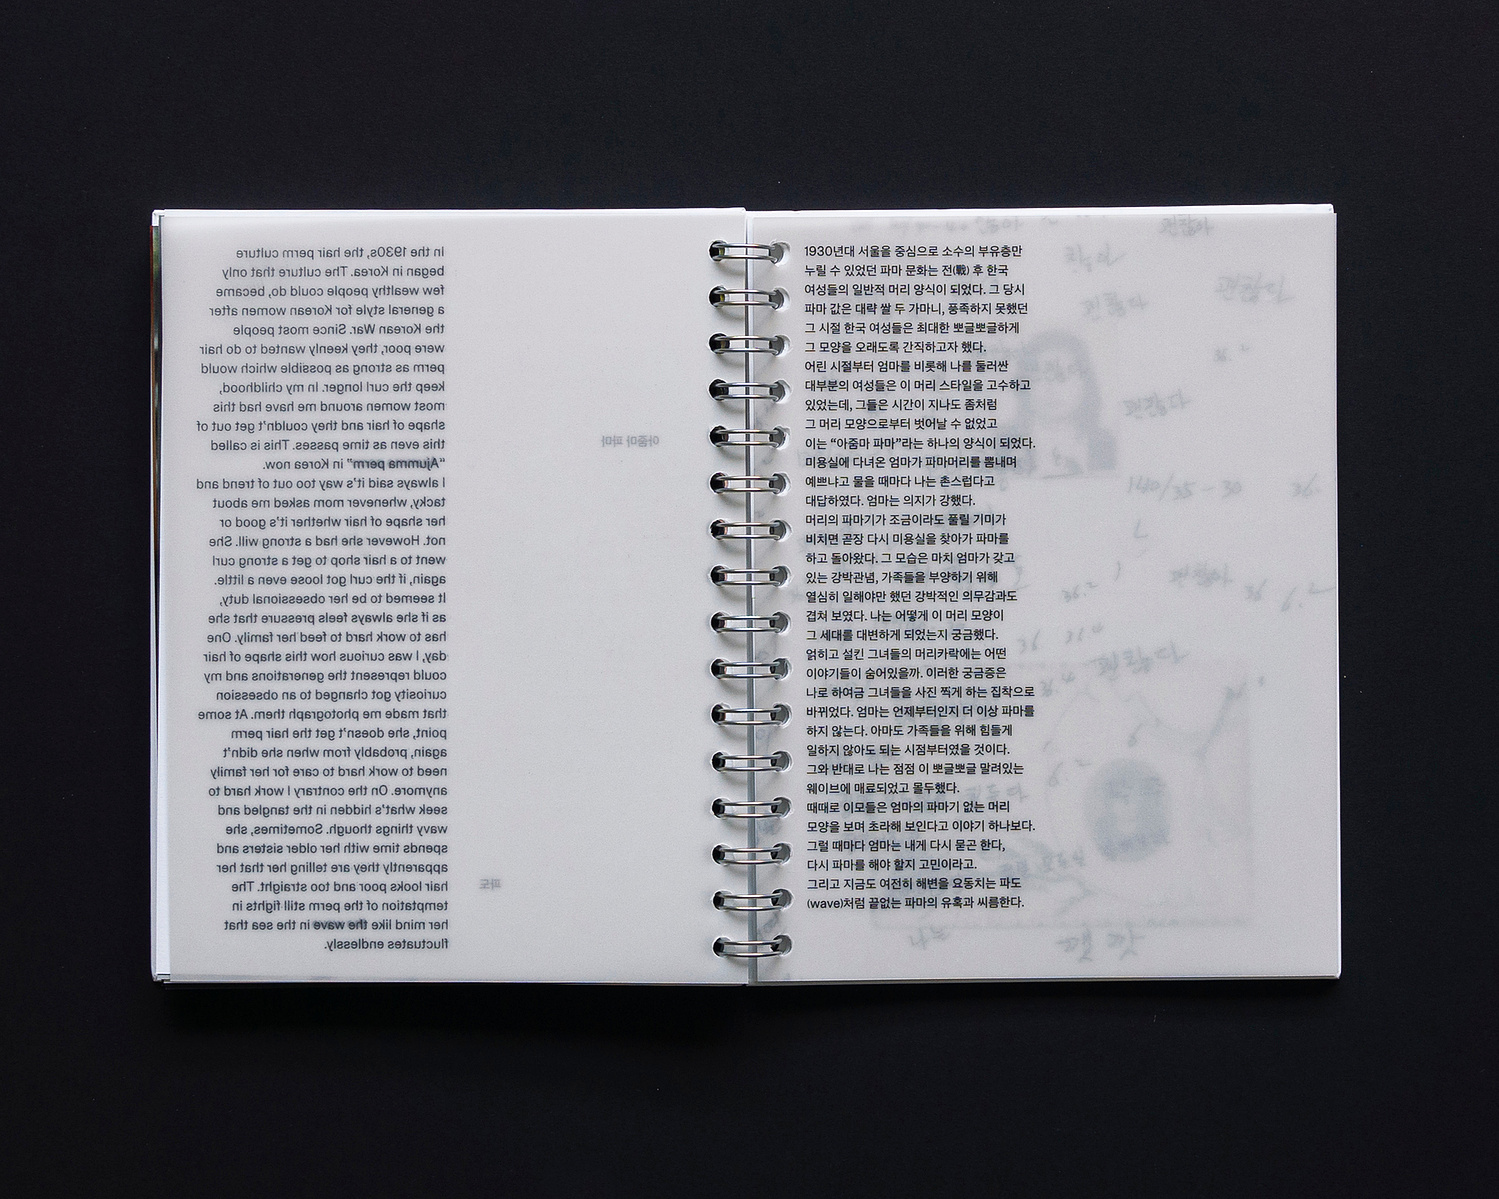 In the 1930s, the hair perm culture
began in Korea. The culture that only
few wealthy people could do, became
a general style for Korean women after
the Korean War. Since most people
were poor, they keenly wanted to do hair
perm as strong as possible which would
keep the curl longer. In my childhood,
most women around me have had this
shape of hair and they couldn't get out of
this even as time passes. This is called
“Ajumma perm” in Korea now.
I always said it's way too out of trend and
tacky, whenever mom asked me about
her shape of hair whether it's good or
not. However she had a strong will. She
went to a hair shop to get a strong curl
again, if the curl got loose even a little.
It seemed to be her obsessional duty,
as if she always feels pressure that she
has to work hard to feed her family. One
day, I was curious how this shape of hair
could represent the generations and my
curiosity got changed to an obsession
that made me photograph them. At some
point, she doesn't get the hair perm
again, probably from when she didn't
need to work hard to care for her family
anymore. On the contrary I work hard to
seek what's hidden in the tangled and
wavy things though. Sometimes, she
spends time with her older sisters and
apparently they are telling her that her
hair looks poor and too straight. The
temptation of the perm still fights in
her mind like the wave in the sea that
fluctuates endlessly.
아줌마 파마
파도
1930년대 서울을 중심으로 소수의 부유층만
누릴 수 있었던 파마 문화는 전(戰) 후 한국
여성들의 일반적 머리 양식이 되었다. 그 당시
파마 값은 대략 쌀 두 가마니, 풍족하지 못했던
그 시절 한국 여성들은 최대한 뽀글뽀글하게
그 모양을 오래도록 간직하고자 했다.
어린 시절부터 엄마를 비롯해 나를 둘러싼
대부분의 여성들은 이 머리 스타일을 고수하고
있었는데, 그들은 시간이 지나도 좀처럼
그 머리 모양으로부터 벗어날 수 없었고
이는 “아줌마 파마”라는 하나의 양식이 되었다.
미용실에 다녀온 엄마가 파마머리를 뽐내며
예쁘냐고 물을 때마다 나는 촌스럽다고
대답하였다. 엄마는 의지가 강했다.
머리의 파마기가 조금이라도 풀릴 기미가
비치면 곧장 다시 미용실을 찾아가 파마를
하고 돌아왔다. 그 모습은 마치 엄마가 갖고
있는 강박관념, 가족들을 부양하기 위해
열심히 일해야만 했던 강박적인 의무감과도
겹쳐 보였다. 나는 어떻게 이 머리 모양이
그 세대를 대변하게 되었는지 궁금했다.
얽히고 설킨 그녀들의 머리카락에는 어떤
이야기들이 숨어있을까. 이러한 궁금증은
나로 하여금 그녀들을 사진 찍게 하는 집착으로
바뀌었다. 엄마는 언제부터인지 더 이상 파마를
하지 않는다. 아마도 가족들을 위해 힘들게
일하지 않아도 되는 시점부터였을 것이다.
그와 반대로 나는 점점 이 뽀글뽀글 말려있는
웨이브에 매료되었고 몰두했다.
때때로 이모들은 엄마의 파마기 없는 머리
모양을 보며 초라해 보인다고 이야기 하나보다.
그럴 때마다 엄마는 내게 다시 묻곤 한다,
다시 파마를 해야 할지 고민이라고.
그리고 지금도 여전히 해변을 요동치는 파도
(wave)처럼 끝없는 파마의 유혹과 씨름한다.